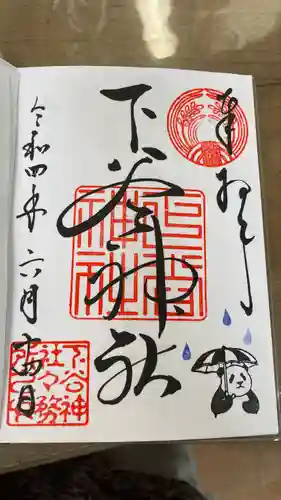 奉拝
下谷神社
令和四年六月十四日
下谷神社
下谷神社々務所印